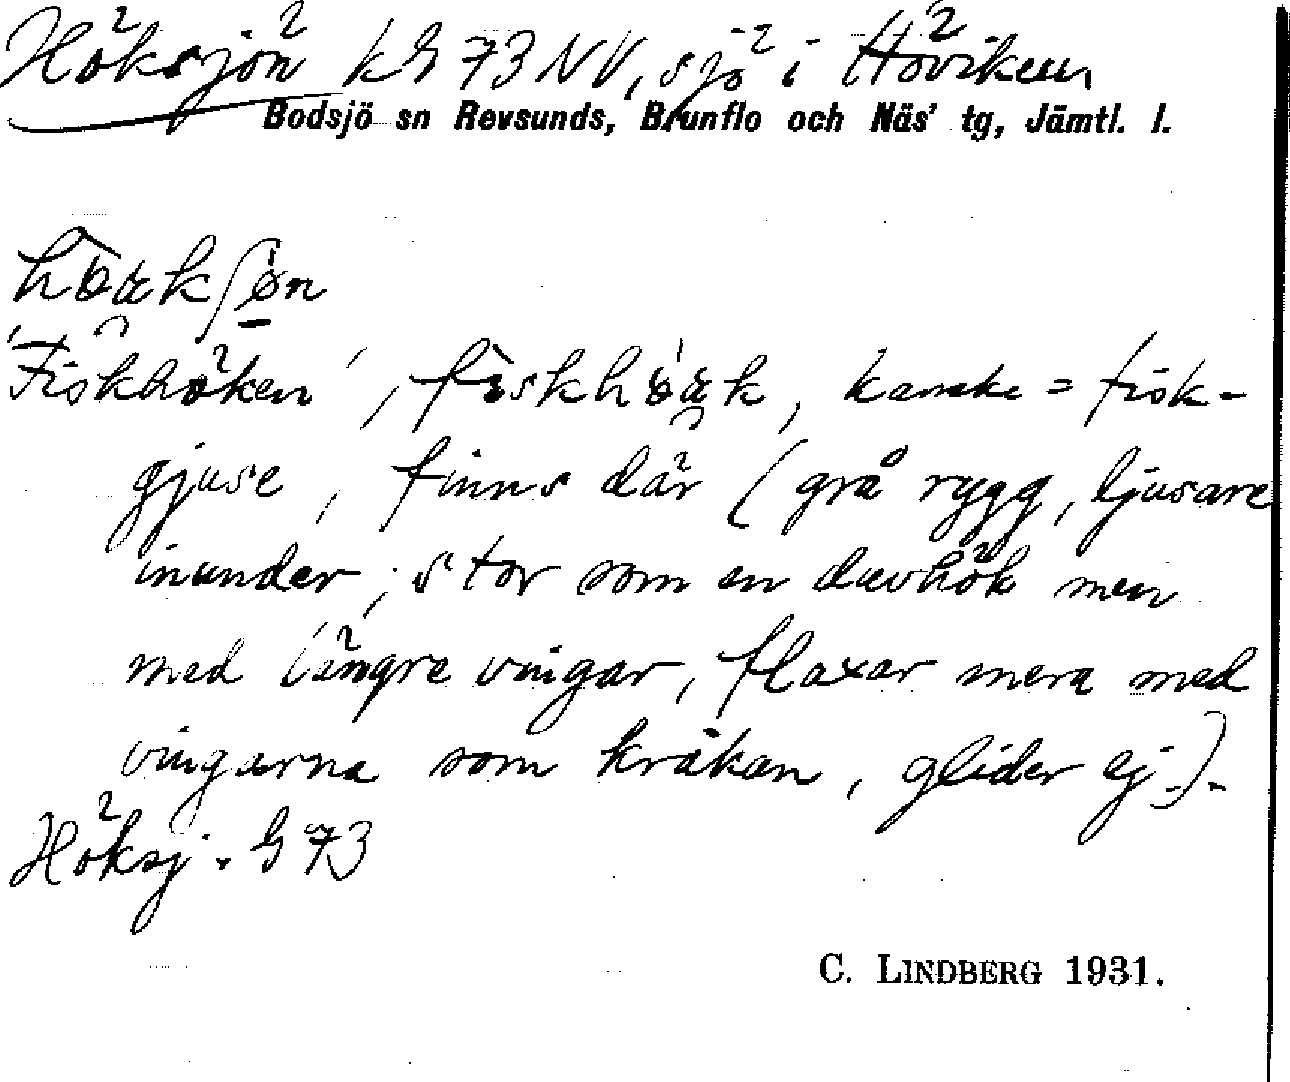 Höksjön kG 73 NV, sjö i Höviken
Bodsjö sn Revsunds, Brunflo och Näs' tg, Jämtl. l.
'Fiskhöken', kanske = fisk-
gjuse, finns där (grå rygg, ljusare
inunder, stor som en duvhök men
med längre vingar, flaxar mera med
vingarna som kråkan, glider ej).
Höksj. G 73
C. LINDBERG 1931.